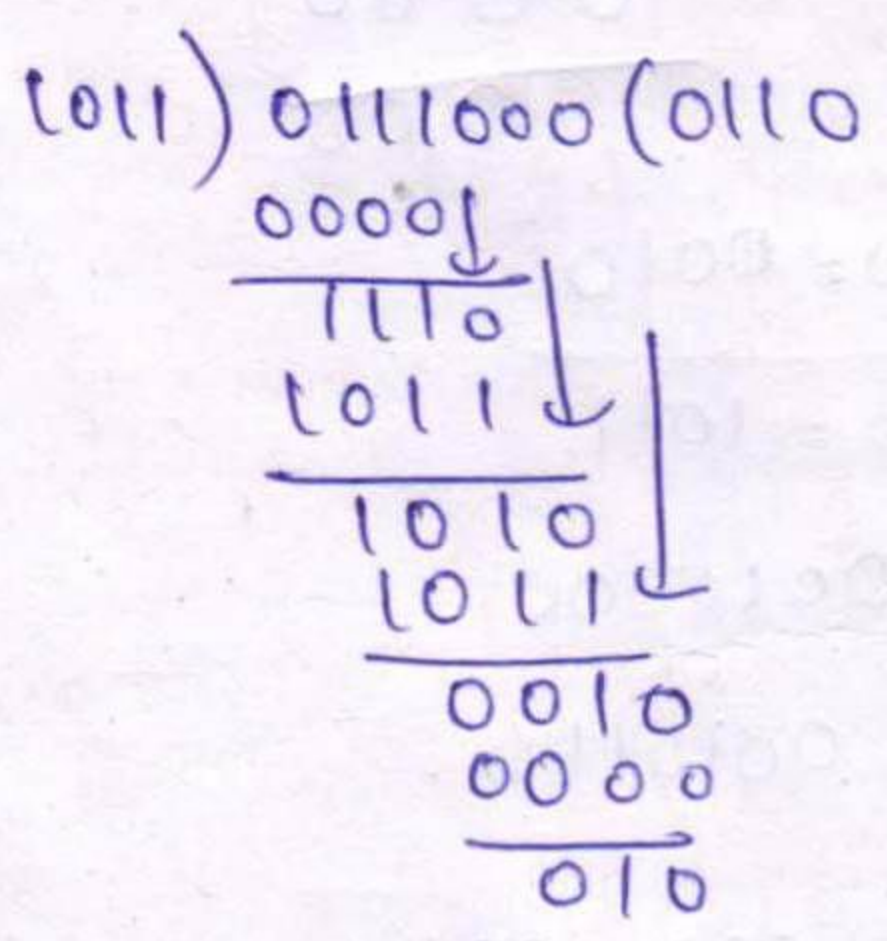 1011) 0111000 (0110
0000
1110
1011
1010
1011
0010
0000
010